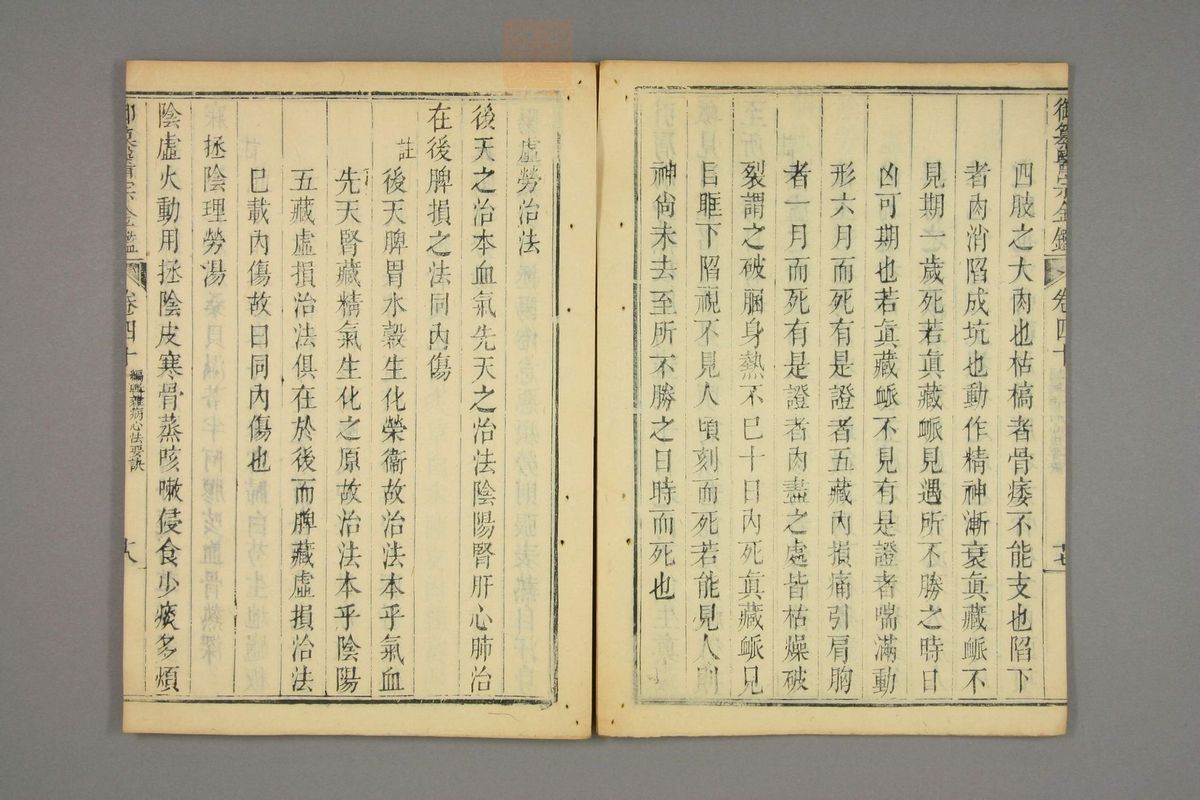 御纂醫宗金鑑 卷四十 十七
四肢之大肉也枯槁者骨痿不能支也陷下
者肉消陷成坑也動作精神漸衰眞藏脈不
見期一歲死若眞藏脈見遇所不勝之時日
凶可期也若眞藏脈不見有是證者喘滿動
形六月而死有是證者五藏內損痛引肩胸
者一月而死有是證者肉盡之處皆枯燥破
裂謂之破䐃身熱不已十日內死眞藏脈見
目眶下陷視不見人頃刻而死若能見人則
神尙未去至所不勝之日時而死也
虛勞治法
後天之治本血氣先天之治法陰陽腎肝心肺治
在後脾損之法同內傷
註 後天脾胃水穀生化榮衛故治法本乎氣血
先天腎藏精氣生化之原故治法本乎陰陽
五藏虛損治法俱在於後而脾藏虛損治法
已載內傷故曰同內傷也
拯陰理勞湯
陰虛火動用拯陰皮寒骨蒸咳嗽侵食少痰多煩
御纂醫宗金鑑 卷四十 編輯雜病心法要訣 十八